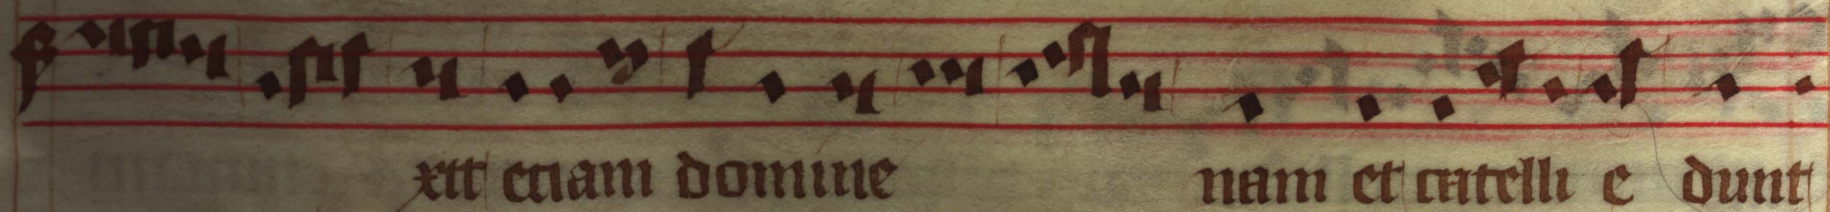 xit etiam domine nam et catelli e dunt